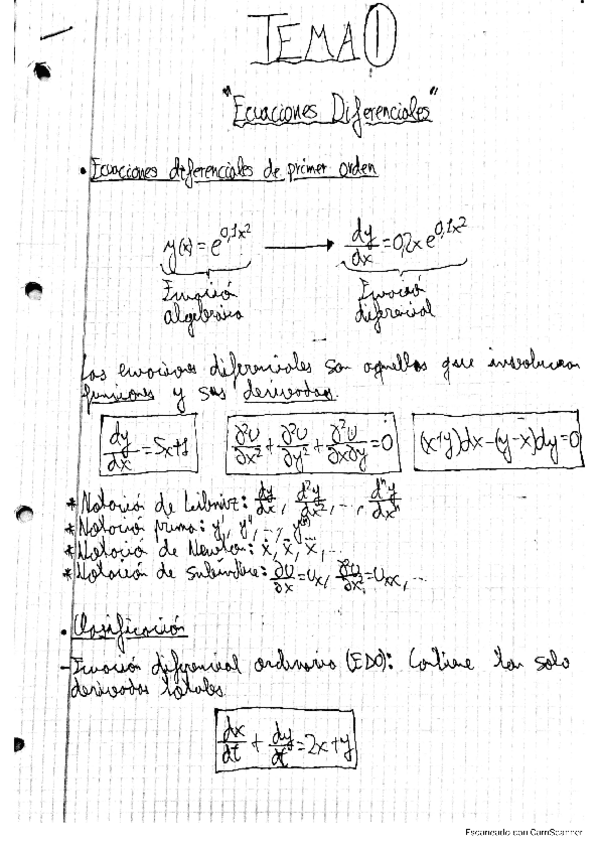 TEMA 1
"Ecuaciones Diferenciales"
• Ecuaciones diferenciales de primer orden
y(x) = e^{0,1x^2} → dy/dx = 0,2x e^{0,1x^2}
Ecuación algebraica
Ecuación diferencial
Las ecuaciones diferenciales son aquellas que involucran
funciones y sus derivadas.
dy/dx = 5x+1
∂²U/∂x² + ∂²U/∂y² + ∂²U/∂x∂y = 0
(x+y)dx-(y-x)dy=0
* Notación de Leibniz: dy/dx, d²y/dx², ..., dⁿy/dxⁿ
* Notación prima: y', y'', ..., y⁽ⁿ⁾
* Notación de Newton: ẋ, ẍ, ...
* Notación de subíndice: ∂U/∂x = Ux, ∂²U/∂x² = Uxx, ...
• Clasificación
- Ecuación diferencial ordinaria (EDO): Contiene tan solo
derivadas totales.
dx/dt + dy/dt = 2x+y
Escaneado con CamScanner